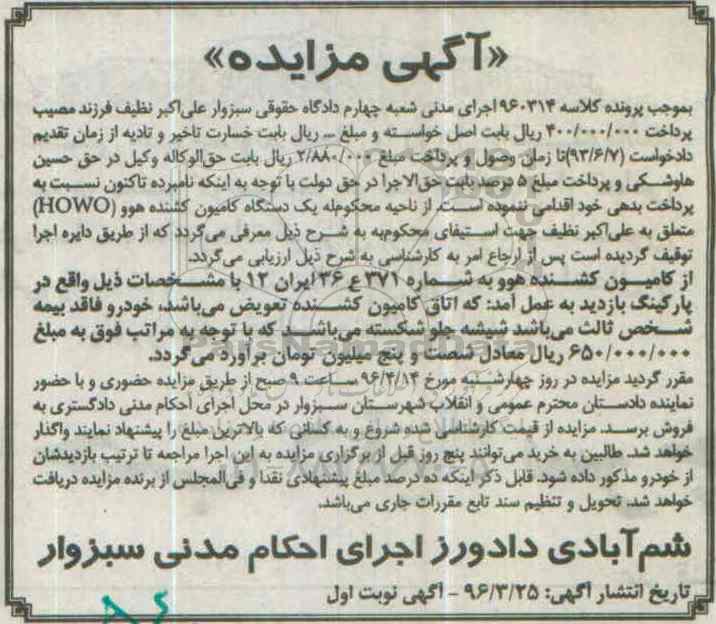 «آگهی مزایده»
بموجب پرونده کلاسه ۹۶۰۳۱۴ اجرای مدنی شعبه چهارم دادگاه حقوقی سبزوار علی‌اکبر نظیف فرزند مصیب
پرداخت ۴۰۰/۰۰۰/۰۰۰ ریال بابت اصل خواسته و مبلغ ... ریال بابت خسارت تاخیر و تادیه از زمان تقدیم
دادخواست (۹۳/۶/۷) تا زمان وصول و پرداخت مبلغ ۲/۸۸۰/۰۰۰ ریال بابت حق‌الوکاله وکیل در حق حسین
هاوشکی و پرداخت مبلغ ۵ درصد بابت حق‌الاجرا در حق دولت با توجه به اینکه نامبرده تاکنون نسبت به
پرداخت بدهی خود اقدامی ننموده است. از ناحیه محکوم‌له یک دستگاه کامیون کشنده هوو (HOWO)
متعلق به علی‌اکبر نظیف جهت استیفای محکوم‌به به شرح ذیل معرفی می‌گردد که از طریق دایره اجرا
توقیف گردیده است پس از ارجاع امر به کارشناسی به شرح ذیل ارزیابی می‌گردد.
از کامیون کشنده هوو به شماره ۳۷۱ ع ۳۶ ایران ۱۲ با مشخصات ذیل واقع در
پارکینگ بازدید به عمل آمد: که اتاق کامیون کشنده تعویض می‌باشد، خودرو فاقد بیمه
شخص ثالث می‌باشد شیشه جلو شکسته می‌باشد که با توجه به مراتب فوق به مبلغ
۶۵۰/۰۰۰/۰۰۰ ریال معادل شصت و پنج میلیون تومان برآورد می‌گردد.
مقرر گردید مزایده در روز چهارشنبه مورخ ۹۶/۴/۱۴ ساعت ۹ صبح از طریق مزایده حضوری و با حضور
نماینده دادستان محترم عمومی و انقلاب شهرستان سبزوار در محل اجرای احکام مدنی دادگستری به
فروش برسد. مزایده از قیمت کارشناسی شده شروع و به کسانی که بالاترین مبلغ را پیشنهاد نمایند واگذار
خواهد شد. طالبین به خرید می‌توانند پنج روز قبل از برگزاری مزایده به این اجرا مراجعه تا ترتیب بازدیدشان
از خودرو مذکور داده شود. قابل ذکر اینکه ده درصد مبلغ پیشنهادی نقدا و فی‌المجلس از برنده مزایده دریافت
خواهد شد. تحویل و تنظیم سند تابع مقررات جاری می‌باشد.
شم‌آبادی دادورز اجرای احکام مدنی سبزوار
تاریخ انتشار آگهی: ۹۶/۳/۲۵ - آگهی نوبت اول
ParsNamadData